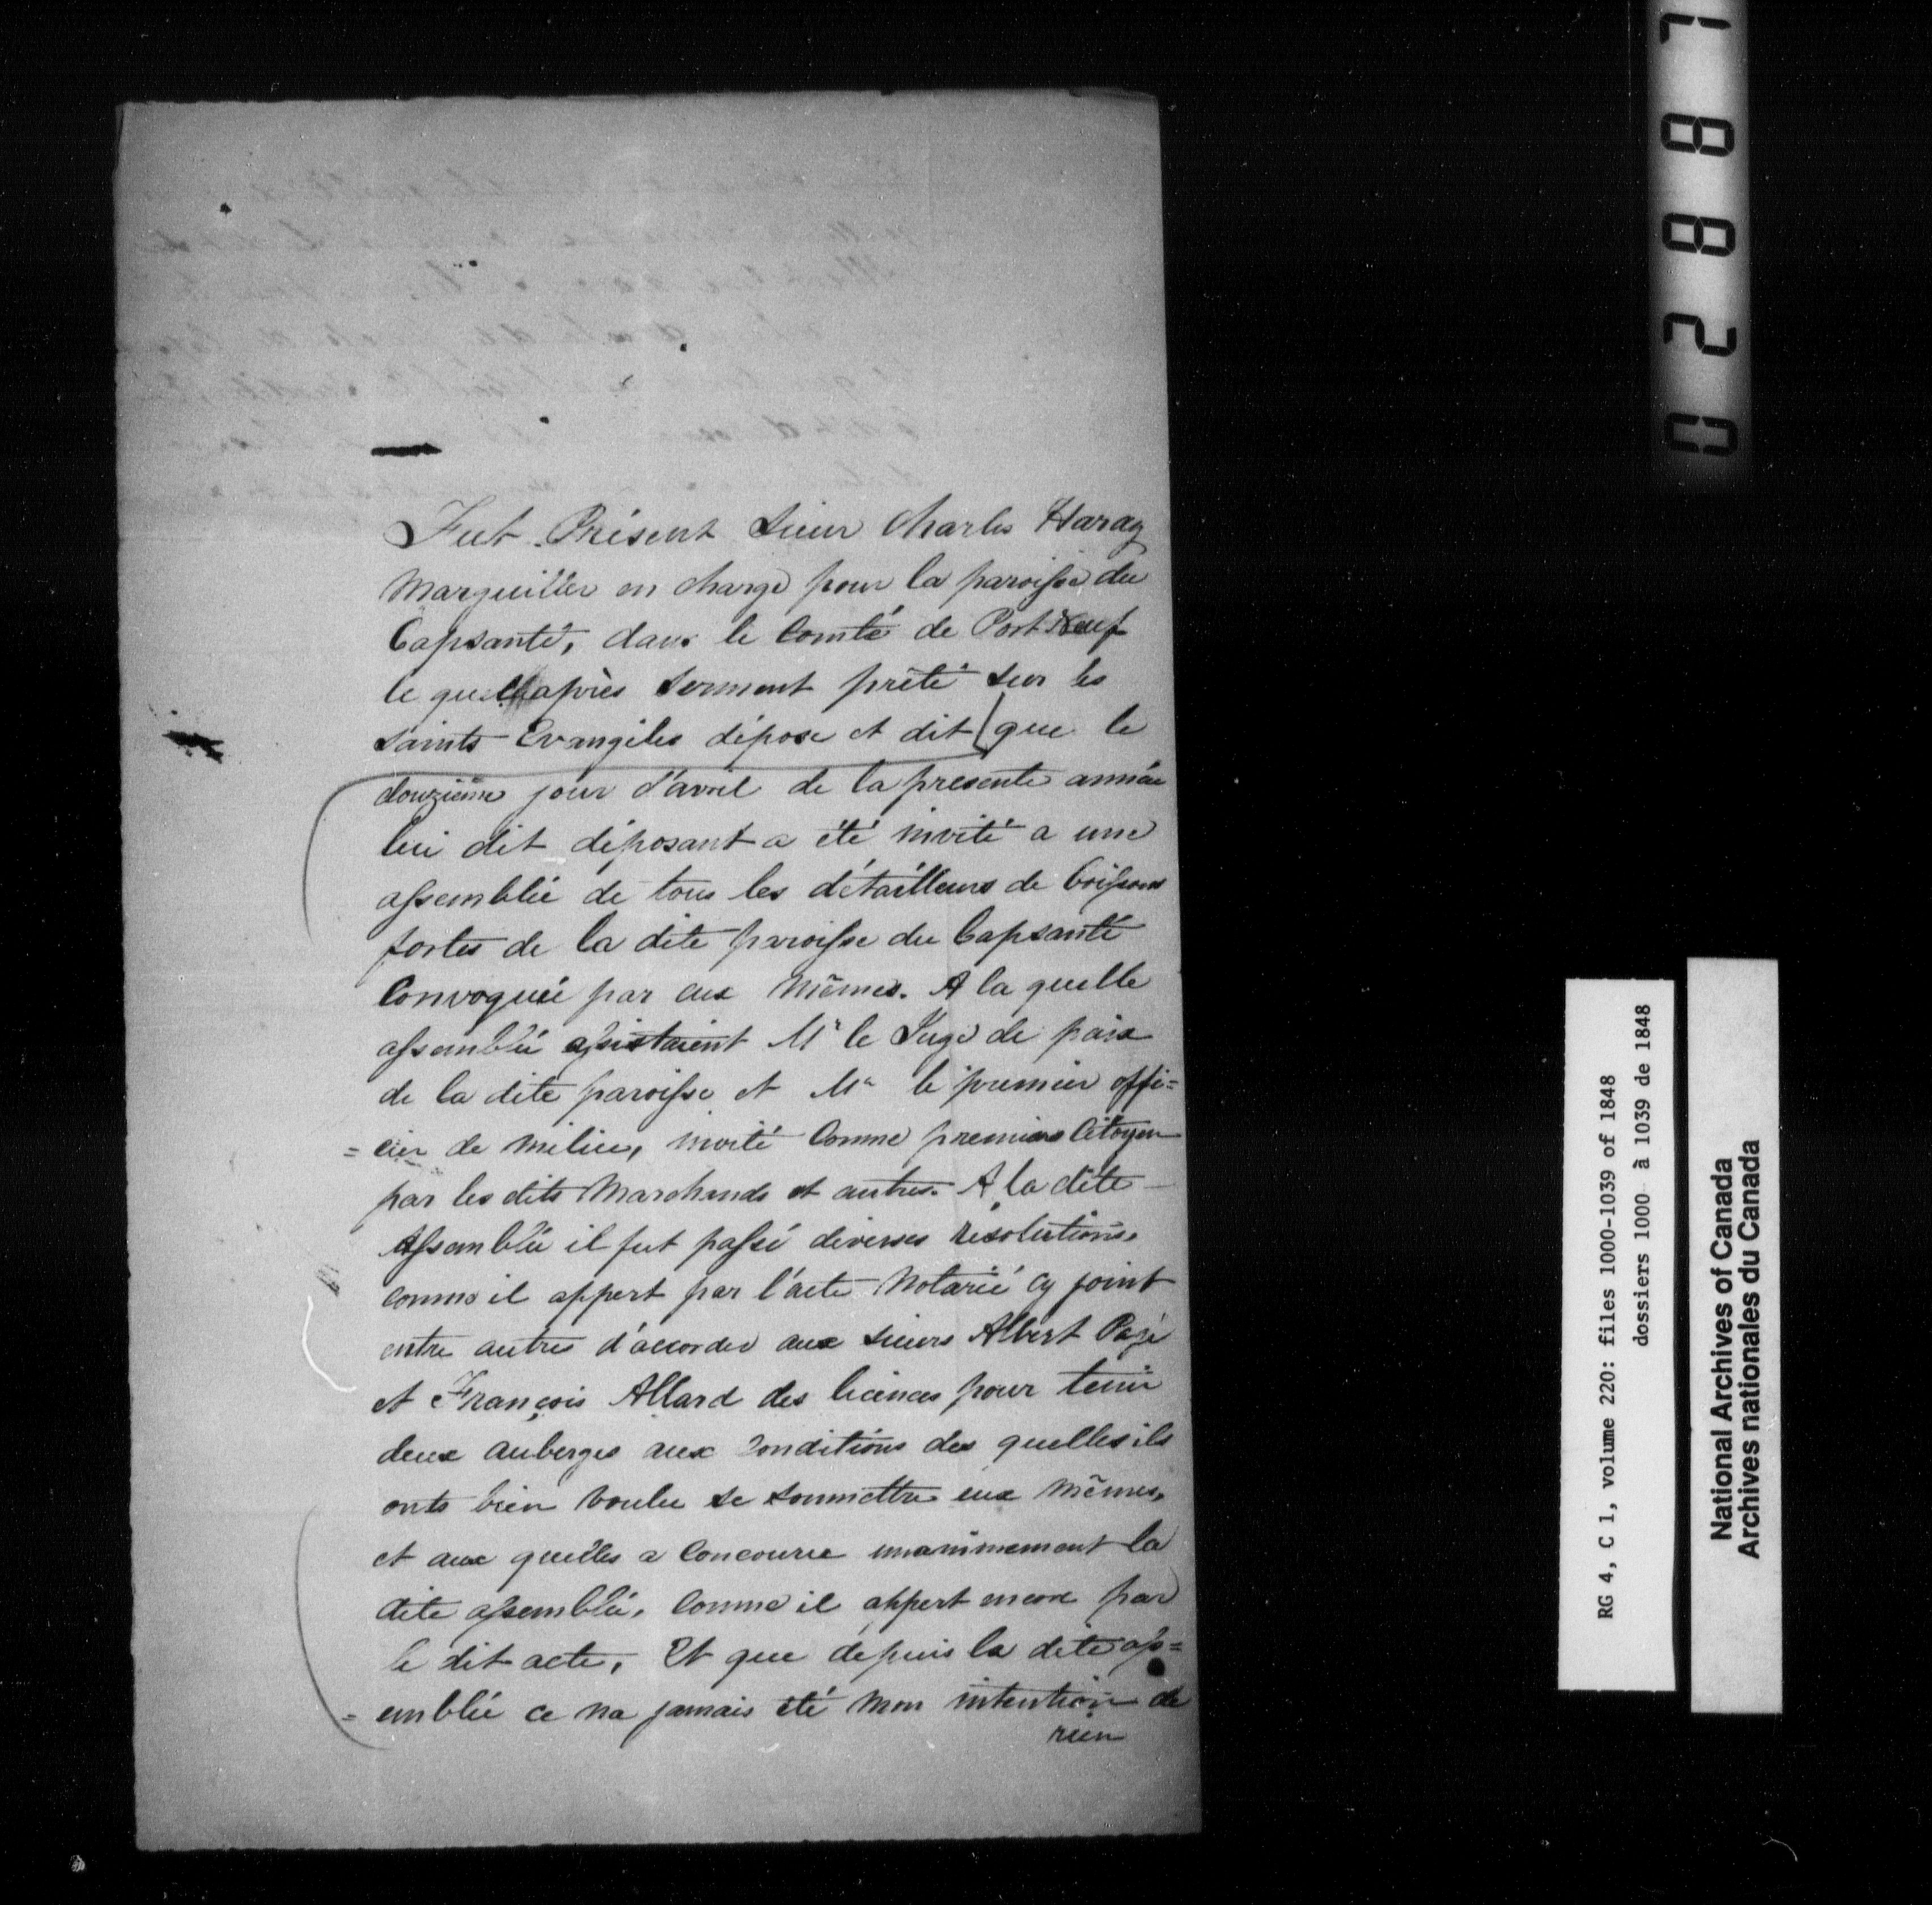 Fut Présent Sieur Charles Haray
Marguillier en charge pour la paroisse du
Capsanté, dans le Comté de Port Neuf
le quel après serment prêté sur les
saints Evangiles dépose et dit que le
douzième jour d'avril de la presente année
lui dit déposant a été invité a une
assemblée de tous les détailleurs de boissons
fortes de la dite paroisse du Capsanté
Convoquée par eux mêmes. A la quelle
assemblée assistaient Mr le Juge de paix
de la dite paroisse et Mr le premier offi=
=cier de milice, invité comme premiers Citoyen
par les dits Marchands et autres. A la dite
Assemblée il fut passé diverses résolutions.
comme il appert par l'acte Notarié cy joint
entre autres d'accorder aux sieurs Albert Pagé
et François Allard des licences pour tenir
deux auberges aux Conditions des quelles ils
onts bien voulu se soumettre eux mêmes,
et aux quelles a Concourue unanimement la
dite assemblée, Comme il appert encore par
le dit acte, Et que depuis la dite ass=
=emblée ce na jamais été mon intention de
rien
02887
RG 4, C 1, volume 220: files 1000-1039 of 1848
dossiers 1000 à 1039 de 1848
National Archives of Canada
Archives nationales du Canada